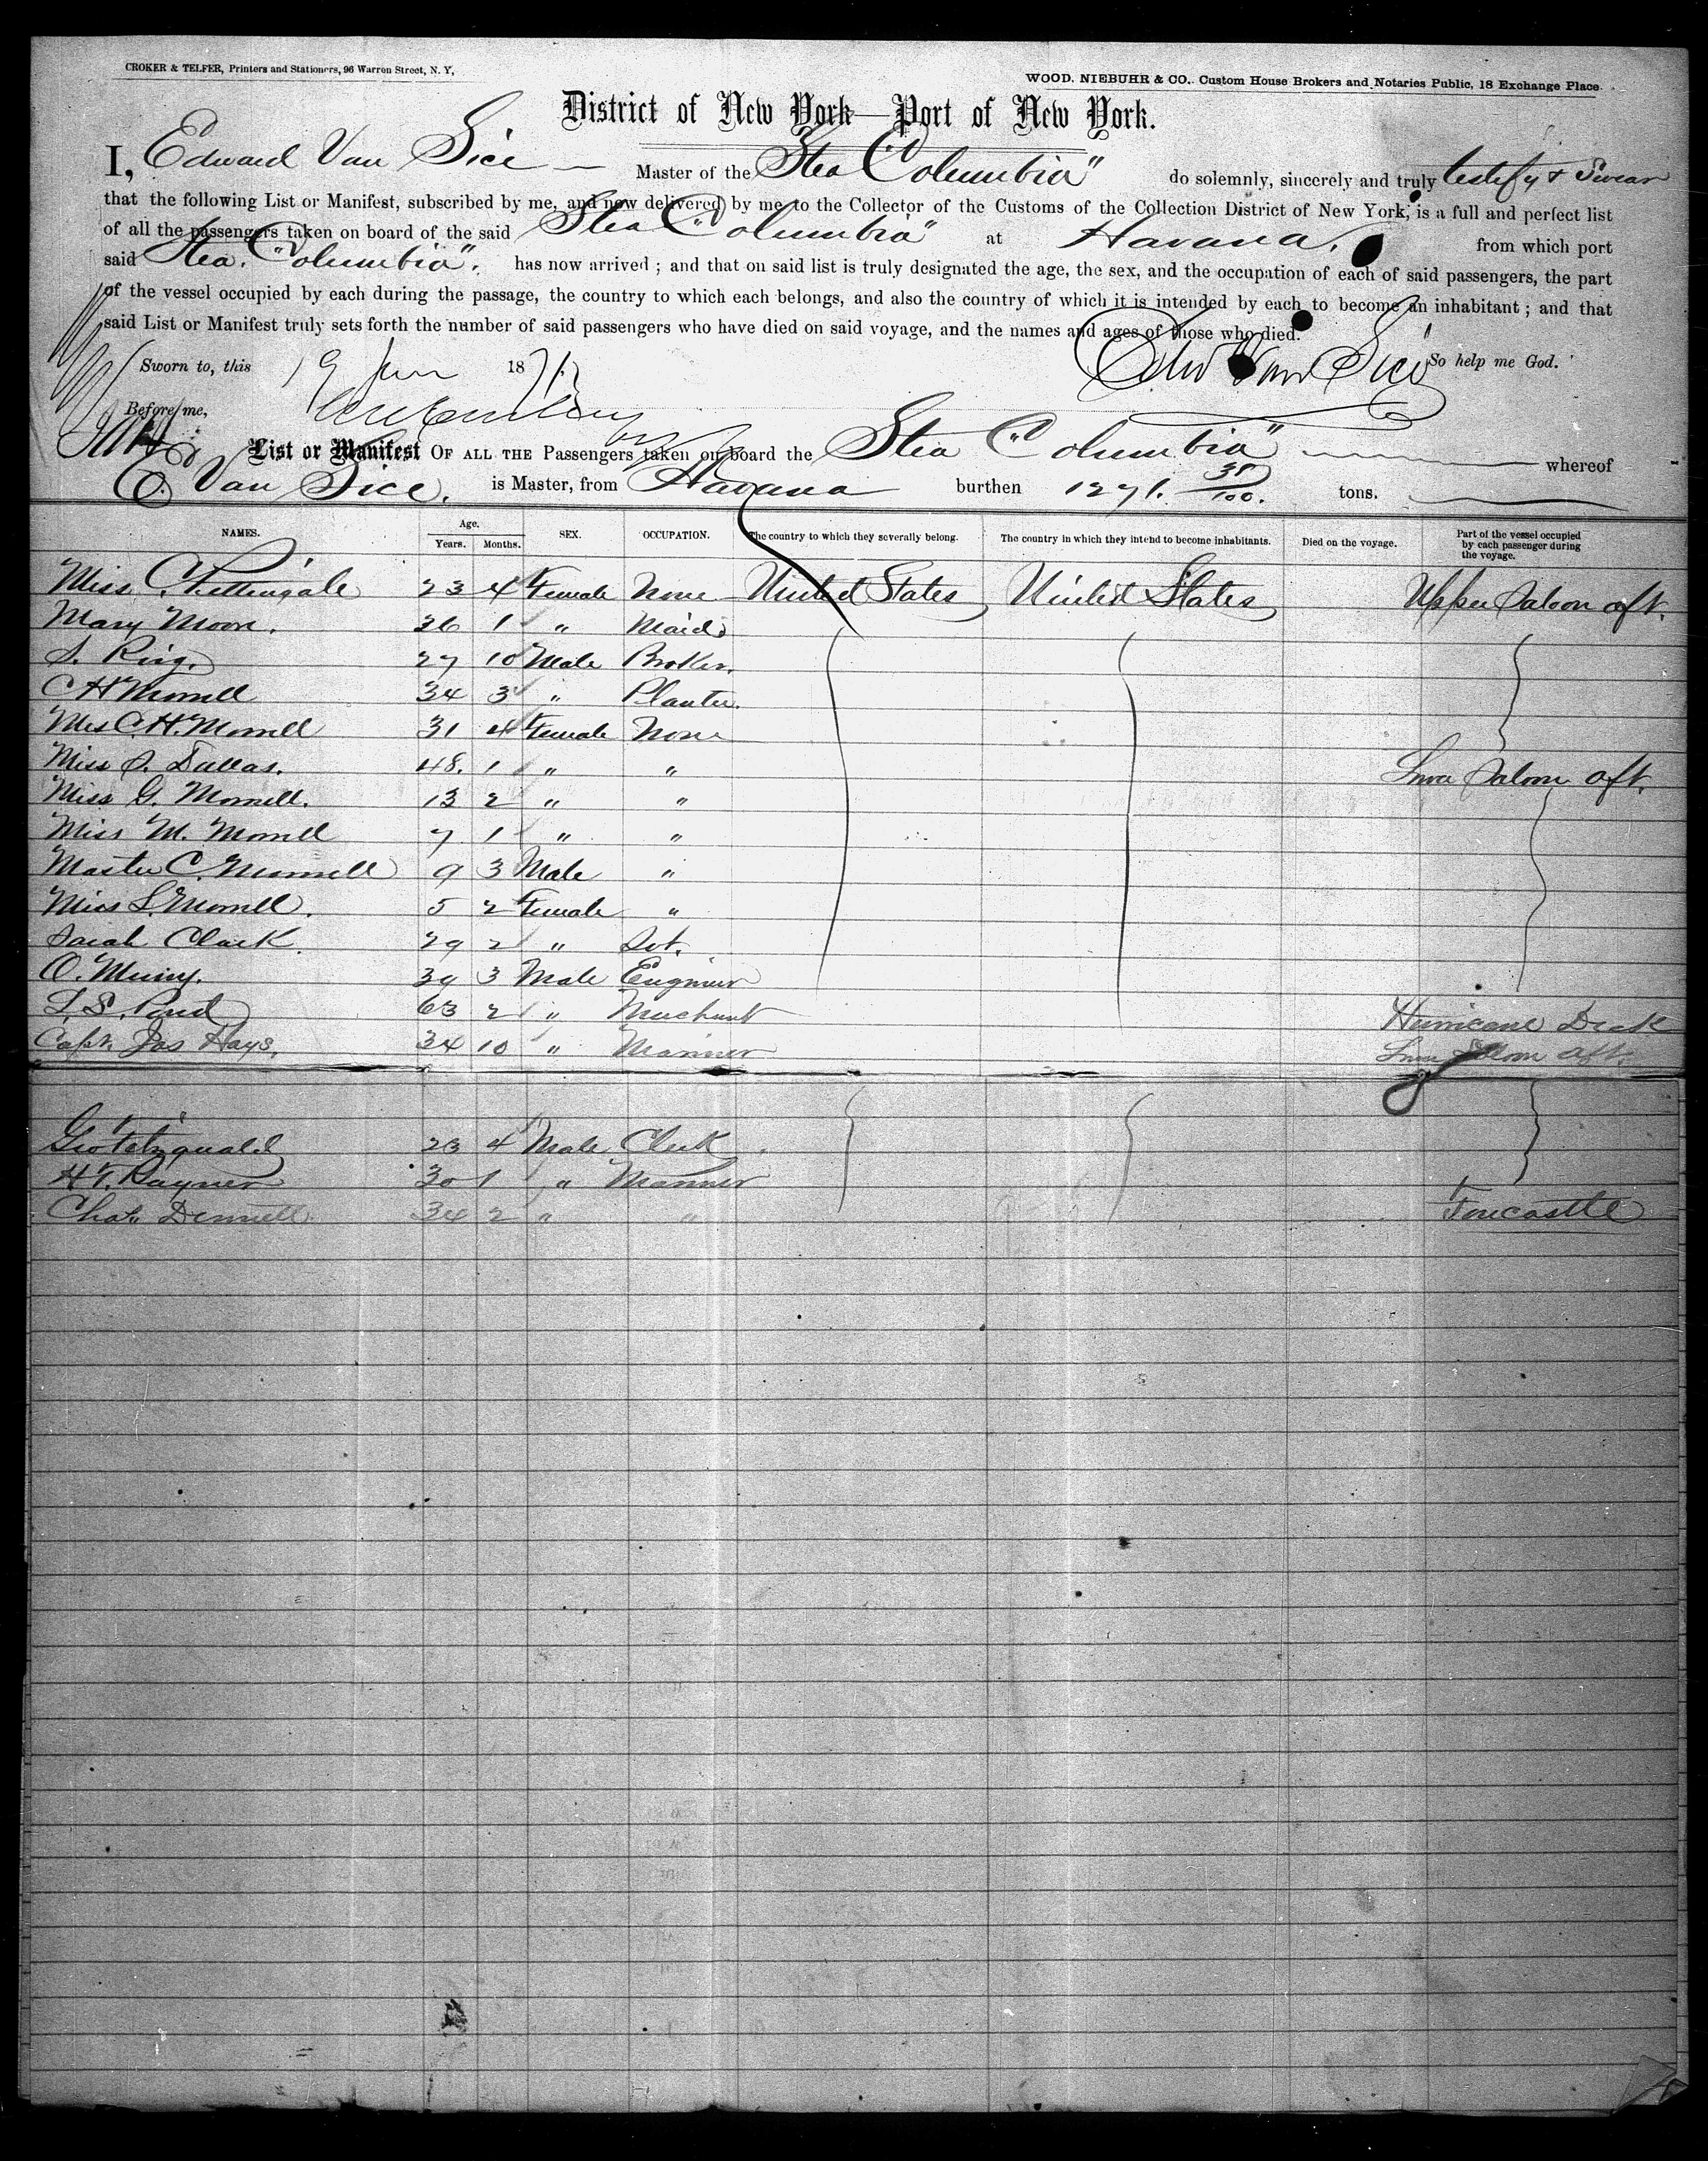 CROKER & TELFER, Printers and Stationers, 96 Warren Street, N. Y,
WOOD, NIEBUHR & CO. Custom House Brokers and Notaries Public, 18 Exchange Place
District of New York—Port of New York.
I, Edward Van Sice — Master of the Stea "Columbia" do solemnly, sincerely and truly testify & Swear
that the following List or Manifest, subscribed by me, and now delivered by me to the Collector of the Customs of the Collection District of New York, is a full and perfect list
of all the passengers taken on board of the said Stea "Columbia" at Havana, from which port
said Stea. "Columbia". has now arrived ; and that on said list is truly designated the age, the sex, and the occupation of each of said passengers, the part
of the vessel occupied by each during the passage, the country to which each belongs, and also the country of which it is intended by each to become an inhabitant ; and that
said List or Manifest truly sets forth the number of said passengers who have died on said voyage, and the names and ages of those who died.
Sworn to, this 19 Jun 187 Edw Van Sice So help me God.
Before me,
List or Manifest OF ALL THE Passengers taken on board the Stea "Columbia" whereof
E. Van Sice. is Master, from Havana burthen 1271. 38/100. tons.
NAMES. Age. Years. Months. SEX. OCCUPATION. The country to which they severally belong. The country in which they intend to become inhabitants. Died on the voyage. Part of the vessel occupied by each passenger during the voyage.
Miss C. Nettingale 23 4 Female None United States United States Upper Saloon aft.
Mary Moore. 36 1 " Maid
S. Ring. 27 10 Male Broker.
C H Morrell 34 3 " Planter.
Mrs C. H. Morrell 31 4 Female None
Miss S. Dallas. 48. 1 " " Lower Saloon aft.
Miss G. Morrell. 13 2 " "
Miss M. Morrell 7 1 " "
Master C. Morrell 9 3 Male "
Miss L. Morrell. 5 2 Female "
Sarah Clark 29 2 " Svt.
O. 39 3 Male Engineer
L. S. Pond 63 2 " Merchant Hurricane Deck
Capt. Jas Hays. 34 10 " Mariner Lower Saloon aft.
Geo Fitzgerald 23 4 Male Clerk
H. T. Rayner 30 1 " Mariner
Chas. Dennett. 34 2 " " Forecastle